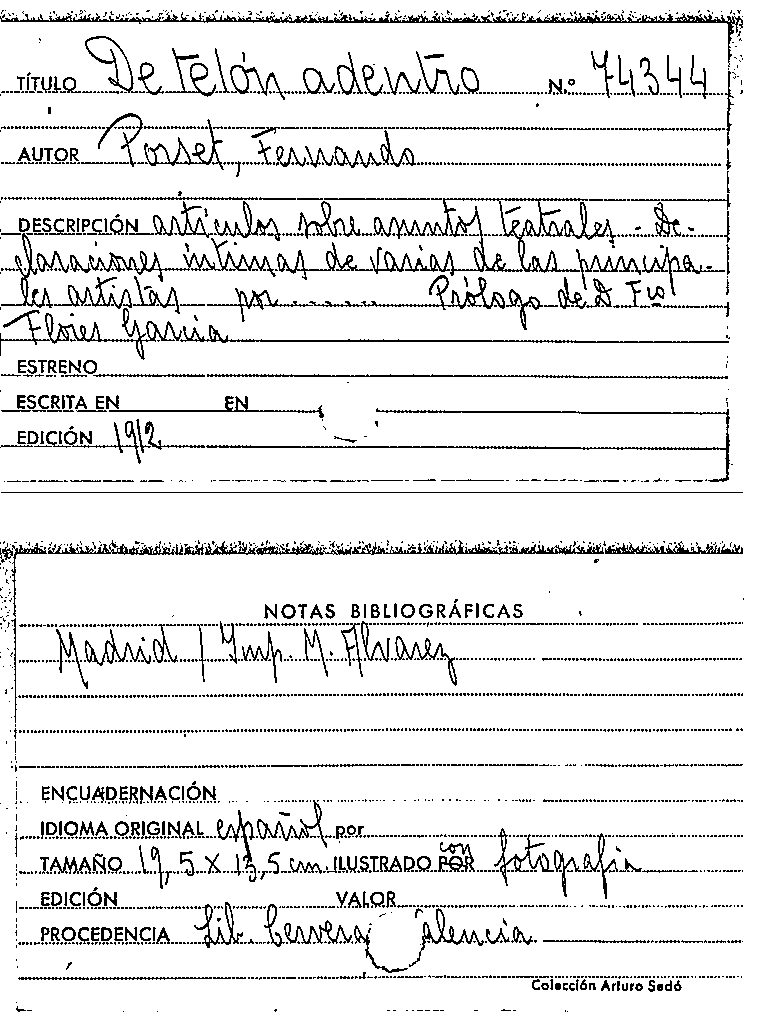 TÍTULO De telón adentro N.º 74344
AUTOR Porset, Fernando
DESCRIPCIÓN artículos sobre asuntos teatrales - De-
claraciones íntimas de varias de las principa-
les artistas por ....... Prólogo de D. Fco
Flores García
ESTRENO
ESCRITA EN EN
EDICIÓN 1912
NOTAS BIBLIOGRÁFICAS
Madrid / Imp. M. Alvarez
ENCUADERNACIÓN
IDIOMA ORIGINAL español por
TAMAÑO 19,5 X 13,5 cm. ILUSTRADO POR con fotografia
EDICIÓN VALOR
PROCEDENCIA Lib. Cervera alencia
Colección Arturo Sedó